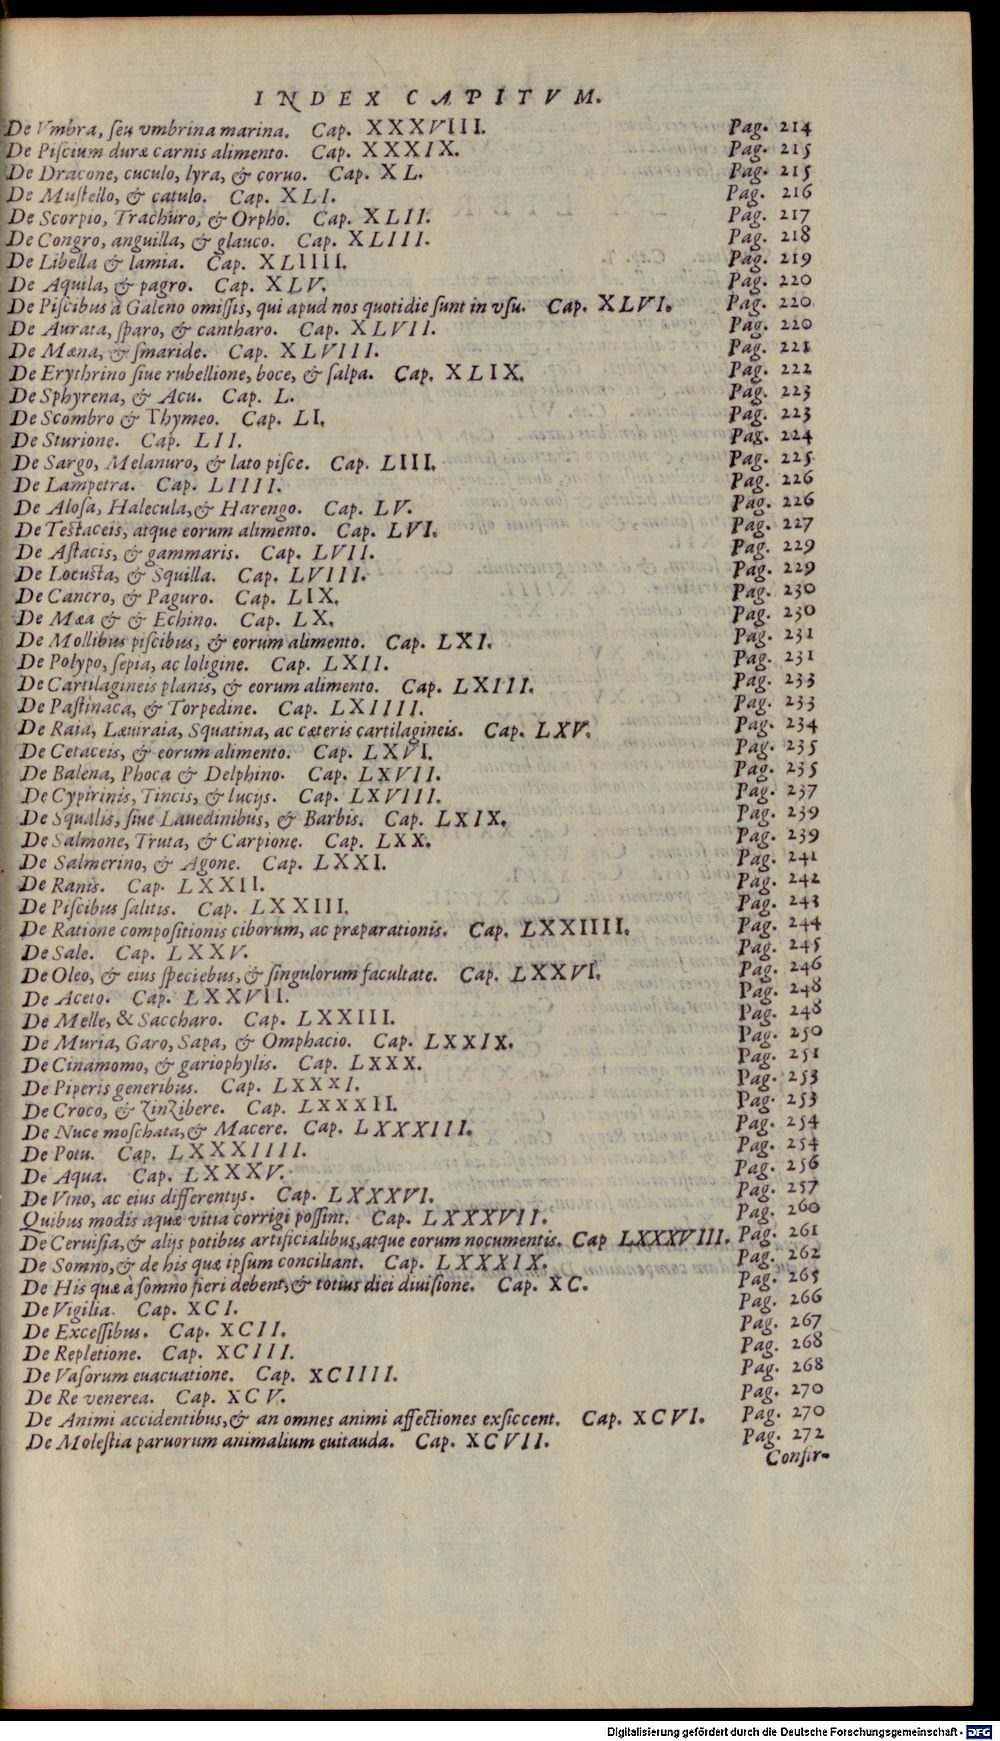 INDEX CAPITVM.
De Vmbra, ſeu vmbrina marina. Cap. XXXVIII. Pag. 214
De Piſcium duræ carnis alimento. Cap. XXXIX. Pag. 215
De Dracone, cuculo, lyra, & coruo. Cap. XL. Pag. 215
De Muſtello, & catulo. Cap. XLI. Pag. 216
De Scorpio, Trachuro, & Orpho. Cap. XLII. Pag. 217
De Congro, anguilla, & glauco. Cap. XLIII. Pag. 218
De Libella & lamia. Cap. XLIIII. Pag. 219
De Aquila, & pagro. Cap. XLV. Pag. 220
De Piſcibus à Galeno omiſſis, qui apud nos quotidie ſunt in vſu. Cap. XLVI. Pag. 220
De Aurata, ſparo, & cantharo. Cap. XLVII. Pag. 220
De Mæna, & ſmaride. Cap. XLVIII. Pag. 221
De Erythrino ſiue rubellione, boce, & ſalpa. Cap. XLIX. Pag. 222
De Sphyrena, & Acu. Cap. L. Pag. 223
De Scombro & Thymeo. Cap. LI. Pag. 223
De Sturione. Cap. LII. Pag. 224
De Sargo, Melanuro, & lato piſce. Cap. LIII. Pag. 225
De Lampetra. Cap. LIIII. Pag. 226
De Aloſa, Halecula,& Harengo. Cap. LV. Pag. 226
De Teſtaceis, atque eorum alimento. Cap. LVI. Pag. 227
De Aſtacis, & gammaris. Cap. LVII. Pag. 229
De Locuſta, & Squilla. Cap. LVIII. Pag. 229
De Cancro, & Paguro. Cap. LIX. Pag. 230
De Mæa & & Echino. Cap. LX. Pag. 230
De Mollibus piſcibus, & eorum alimento. Cap. LXI. Pag. 231
De Polypo, ſepia, ac loligine. Cap. LXII. Pag. 231
De Cartilagineis planis, & eorum alimento. Cap. LXIII. Pag. 233
De Paſtinaca, & Torpedine. Cap. LXIIII. Pag. 233
De Raia, Læuiraia, Squatina, ac cæteris cartilagineis. Cap. LXV. Pag. 234
De Cetaceis, & eorum alimento. Cap. LXVI. Pag. 235
De Balena, Phoca & Delphino. Cap. LXVII. Pag. 235
De Cypirinis, Tincis, & lucijs. Cap. LXVIII. Pag. 237
De Squalis, ſiue Lauedinibus, & Barbis. Cap. LXIX. Pag. 239
De Salmone, Truta, & Carpione. Cap. LXX. Pag. 239
De Salmerino, & Agone. Cap. LXXI. Pag. 241
De Ranis. Cap. LXXII. Pag. 242
De Piſcibus ſalitis. Cap. LXXIII. Pag. 243
De Ratione compoſitionis ciborum, ac præparationis. Cap. LXXIIII. Pag. 244
De Sale. Cap. LXXV. Pag. 245
De Oleo, & eius ſpeciebus,& ſingulorum facultate. Cap. LXXVI. Pag. 246
De Aceto. Cap. LXXVII. Pag. 248
De Melle, & Saccharo. Cap. LXXIII. Pag. 248
De Muria, Garo, Sapa, & Omphacio. Cap. LXXIX. Pag. 250
De Cinamomo, & gariophylis. Cap. LXXX. Pag. 251
De Piperis generibus. Cap. LXXXI. Pag. 253
De Croco, & Zinzibere. Cap. LXXXII. Pag. 253
De Nuce moſchata,& Macere. Cap. LXXXIII. Pag. 254
De Potu. Cap. LXXXIIII. Pag. 254
De Aqua. Cap. LXXXV. Pag. 256
De Vino, ac eius differentijs. Cap. LXXXVI. Pag. 257
Quibus modis aquæ vitia corrigi poſſint. Cap. LXXXVII. Pag. 260
De Ceruiſia,& alijs potibus artificialibus,atque eorum nocumentis. Cap LXXXVIII. Pag. 261
De Somno,& de his quæ ipſum conciliant. Cap. LXXXIX. Pag. 262
De His quæ à ſomno fieri debent,& totius diei diuiſione. Cap. XC. Pag. 265
De Vigilia. Cap. XCI. Pag. 266
De Exceſſibus. Cap. XCII. Pag. 267
De Repletione. Cap. XCIII. Pag. 268
De Vaſorum euacuatione. Cap. XCIIII. Pag. 268
De Re venerea. Cap. XCV. Pag. 270
De Animi accidentibus,& an omnes animi affectiones exſiccent. Cap. XCVI. Pag. 270
De Moleſtia paruorum animalium euitauda. Cap. XCVII. Pag. 272
Confir-
Digitalisierung gefördert durch die Deutsche Forschungsgemeinschaft - DFG